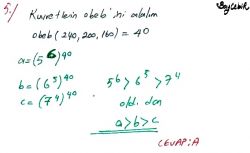 5./ Kuvvetlerin obeb'ini alalım
obeb(240,200,160) = 40
a=(5⁶)⁴⁰
b=(6⁵)⁴⁰
c=(7⁴)⁴⁰
5⁶>6⁵>7⁴
olduğundan
a>b>c
CEVAP:A